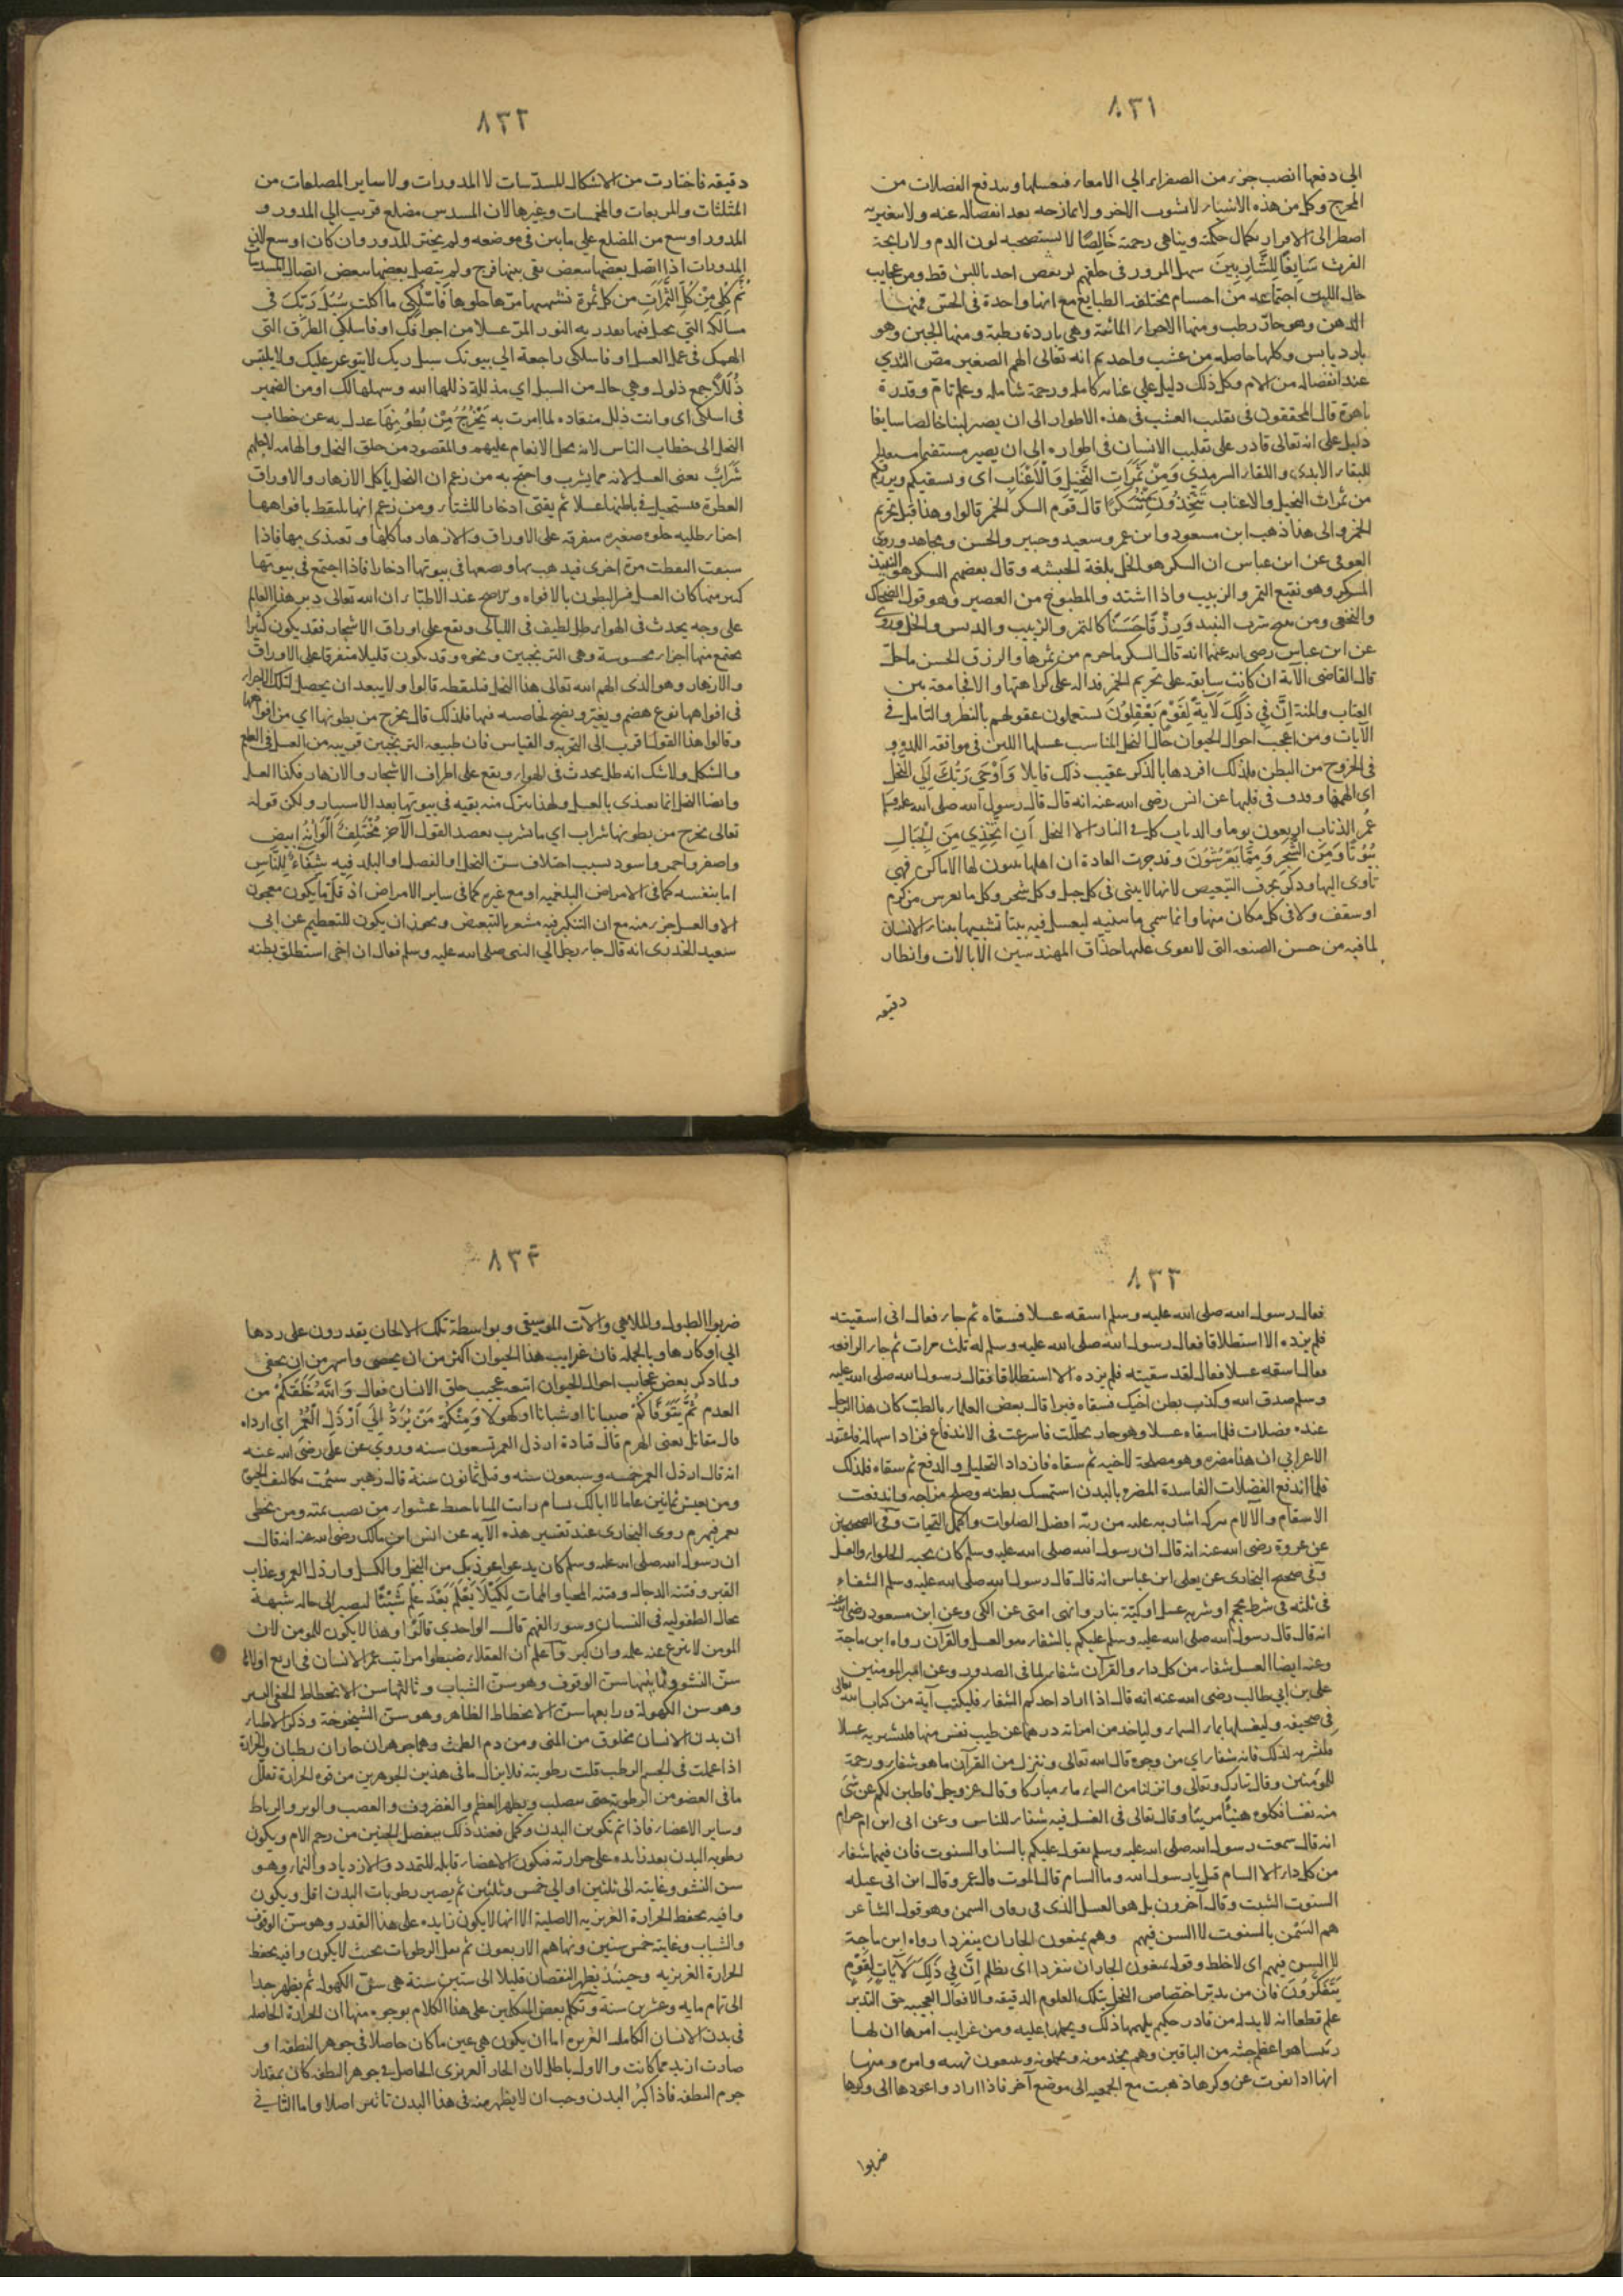 ٨٣١
الي دفعها انصب جزء من الصفراء الي الامعاء فتغسلها ويندفع الفضلات من
المخرج وكل من هذه الاشياء لا يشوب الاخر ولا يمازجه بعد انفصاله عنه ولا يتغير به
اضطر الى الاقرار بكمال حكمته ويناهي رحمته خَالِصًا لا يستصحبه لون الدم ولا رايحة
الفرث سَايِغًا لِلشَّارِبِينَ سهل المرور في حلقهم لم يغص احد باللبن قط ومن عجايب
حال اللبن اجتماعه من اجسام مختلفة الطبايع مع انها واحدة في الحس فمنها
الدهن وهو حار رطب ومنها الاجزاء المائعة وهي باردة رطبة ومنها الجبن وهو
بارد يابس وكلها حاصله من عشب واحد ثم انه تعالى الهم الصغير مص الثدي
عند انفصاله من الام وكل ذلك دليل على عناية كامله ورحمة شامله وعلم تام وقدرة
باهرة قال المحققون في تقليب العشب في هذه الاطوار الى ان يصير لبنا خالصا سايغا
دليل على انه تعالى قادر على تقليب الانسان في اطواره الى ان يصير
للبقاء الابدي واللقاء السرمدي وَمِنْ ثَمَرَاتِ النَّخِيلِ وَالْأَعْنَابِ اي ونسقيكم
من ثمرات النخيل والاعناب تَتَّخِذُونَ مِنْهُ سَكَرًا قال قوم السكر الخمر قالوا وهذا قبل تحريم
الخمر والى هذا ذهب ابن مسعود وابن عمر وسعيد وجبير والحسن ومجاهد وروى
العوفي عن ابن عباس ان السكر هو الخل بلغة الحبشه وقال بعضهم السكر هو النبيذ
المسكر وهو نقيع التمر والزبيب واذا اشتد والمطبوخ من العصير وهو قول الضحاك
والنخعي ومن يبيح شرب النبيذ وَرِزْقًا حَسَنًا كالتمر والزبيب والدبس والخل وروى
عن ابن عباس رضي الله عنهما انه قال السكر ما حرم من ثمرها والرزق الحسن ما حل
قال القاضي الآية ان كانت سابقة على تحريم الخمر فدالة على كراهتها والا فجامعة بين
العتاب والمنة إِنَّ فِي ذَلِكَ لَآيَةً لِقَوْمٍ يَعْقِلُونَ يستعملون عقولهم بالنظر والتامل في
الآيات ومن اعجب احوال الحيوان حال النحل المناسب عسلها اللبن في موافقة
في الخروج من البطن فلذلك افردها بالذكر عقيب ذلك قايلا وَأَوْحَى رَبُّكَ إِلَى النَّحْلِ
اي الهمها وقذف في قلبها عن انس رضي الله عنه انه قال قال رسول الله صلى الله عليه وسلم
عُمر الذباب اربعون يوما والذباب كله في النار الا النحل أَنِ اتَّخِذِي مِنَ الْجِبَالِ
بُيُوتًا وَمِنَ الشَّجَرِ وَمِمَّا يَعْرِشُونَ وقد جرت العادة ان اهلها يبنون لها الاماكن فهي
تاوى اليها وذكر بحرف التبعيض لانها لا يبني في كل جبل وكل شجر وكل ما يعرس من كرم
او سقف ولا في كل مكان منها وانما سمي ما يبنيه ليعسل فيه بيتا تشبيها ببناء الانسان
لما فيه من حسن الصنعه التي لا يقوى عليها حذاق المهندسين الا بالات وانظار
دقيقه
٨٣٢
دقيقه فاختارت من الاشكال المسدسات لا المدورات ولا ساير المضلعات من
المثلثات والمربعات والمخمسات وغيرها لان المسدس مضلع قريب الي المدور و
المدور اوسع من المضلع علي ما بين في موضعه ولم يختر المدور وان كان اوسع لان
المدورات اذا اتصل بعضها ببعض بقى بينها فرج ولم يتصل بعضها ببعض اتصال المسدسات
ثُمَّ كُلِي مِنْ كُلِّ الثَّمَرَاتِ من كل ثمرة تشتهيها مرها حلوها فَاسْلُكِي ما اكلت سُبُلَ رَبِّكَ في
مسالكه التي يحيل فيها بقدرته النور المر عسلا من اجوافك او فاسلكي الطرق التي
الهمك في عمل العسل او فاسلكي راجعة الي بيوتك سبل ربك لا يتوعر عليك ولا يلتبس
ذُلُلًا جمع ذلول وهي حال من السبل اي مذللة ذللها الله وسهلها لك او من الضمير
في اسلكي اي وانت ذلل منقاده لما امرت به يَخْرُجُ مِنْ بُطُونِهَا عدل به عن خطاب
النحل الى خطاب الناس لانه محل الانعام عليهم والمقصود من خلق النحل والهامه لاجلهم
شَرَابٌ يعنى العسل لانه مما يشرب واحتج به من زعم ان النحل يأكل الازهار والاوراق
العطرة فيستحيل في باطنها عسلا ثم يقئ ادخارا للشتاء ومن زعم انها تلتقط بافواهها
اجزاء طليه حلوه صغيره متفرقه على الاوراق والازهار فياكلها ويتغذى بها فاذا
شبعت التقطت مرة اخرى فيذهب بها ويضعها في بيوتها ادخارا فاذا اجتمع في بيوتها
كثير منها كان العسل فسر البطون بالافواه عند الاطباء ان الله تعالى دبر هذا العالم
على وجه يحدث في الهواء طل لطيف في الليالى ويقع على اوراق الاشجار فقد يكون كثيرا
يجتمع منها اجزاء محسوسة وهى الترنجبين ونحوه وقد يكون قليلا متفرقا على الاوراق
والازهار وهو الذى الهم الله تعالى هذا النحل فيلتقطه قالوا ولا يبعد ان يحصل لتلك الاجزاء
في افواهها نوع هضم وتغير ونضج لخاصيه فيها فلذلك قال يخرج من بطونها اي من افواهها
وقالوا هذا القول اقرب الى التجربه والقياس فان طبيعه الترنجبين قريبه من العسل في الطعم
والشكل ولا شك انه طل يحدث في الهواء ويقع على اطراف الاشجار والازهار فكذا العسل
وايضا النحل انما يغذى بالعسل ولهذا يترك منه بقيه في بيوتها بعد الاستيار ولكن قوله
تعالى يخرج من بطونها شراب اي ما يشرب يعضد القول الآخر مُخْتَلِفٌ أَلْوَانُهُ ابيض
واصفر واحمر واسود بسبب اختلاف سن النحل او الفصل او البلد فِيهِ شِفَاءٌ لِلنَّاسِ
اما بنفسه كما في الامراض البلغميه او مع غيره كما في ساير الامراض اذ قل ما يكون معجون
الا والعسل جزء منه مع ان التنكير فيه مشعر بالتبعيض ويجوز ان يكون للتعظيم عن ابي
سعيد الخدرى انه قال جاء رجل الي النبي صلى الله عليه وسلم فقال ان اخي استطلق بطنه
٨٣٣
فقال رسول الله صلى الله عليه وسلم اسقه عسلا فسقاه ثم جاء فقال انى اسقيته
فلم يزده الا استطلاقا فقال رسول الله صلى الله عليه وسلم له ثلث مرات ثم جاء الرابعه
فقال اسقه عسلا فقال لقد سقيته فلم يزده الا استطلاقا فقال رسول الله صلى الله عليه
وسلم صدق الله وكذب بطن اخيك فسقاه فبرا قال بعض العلماء بالطب كان هذا الرجل
عنده فضلات فلما اسقاه عسلا وهو حار تحللت فاسرعت في الاندفاع فزاد اسهاله فاعتقد
الاعرابي ان هذا مضره وهو مصلحة لاخيه ثم سقاه فازداد التحليل والدفع ثم سقاه فلذلك
فلما اندفع الفضلات الفاسدة المضره بالبدن استمسك بطنه وصلح مزاجه واندفعت
الاسقام والآلام ببركة اشارته عليه من ربه افضل الصلوات واكمل التحيات وفي الصحيحين
عن عروة رضي الله عنه انه قال ان رسول الله صلى الله عليه وسلم كان يحب الحلواء والعسل
وفي صحيح البخارى عن يعلى ابن عباس انه قال قال رسول الله صلى الله عليه وسلم الشفاء
في ثلثة في شرطة محجم او شربة عسل او كية بنار وانهى امتى عن الكى وعن ابن مسعود رضي الله عنه
انه قال قال رسول الله صلى الله عليه وسلم عليكم بالشفاءين العسل والقرآن رواه ابن ماجة
وعنه ايضا العسل شفاء من كل داء والقرآن شفاء لما في الصدور وعن امير المومنين
علي بن ابي طالب رضى الله عنه انه قال اذا اراد احدكم الشفاء فليكتب آية من كتاب الله تعالى
في صحيفه وليغسلها بماء السماء ولياخذ من امراته درهما عن طيب نفس منها فليشتر به عسلا
فليشربه لذلك فانه شفاء اي من وجوه قال الله تعالى وننزل من القرآن ما هو شفاء ورحمة
للمؤمنين وقال تبارك وتعالى وانزلنا من السماء ماء مباركا وقال عز وجل فان طبن لكم عن شئ
منه نفسا فكلوه هنيئا مريئا وقال تعالى في العسل فيه شفاء للناس وعن ابى ابن ام حرام
انه قال سمعت رسول الله صلى الله عليه وسلم يقول عليكم بالسنا والسنوت فان فيهما شفاء
من كل داء الا السام قيل يا رسول الله وما السام قال الموت قال عمرو قال ابن ابى عبله
السنوت الشبت وقال آخرون بل هو العسل الذى في زقاق السمن وهو قول الشاعر
هم السمن بالسنوت لا السن فيهم وهم يمنعون الجار ان يتفردا رواه ابن ماجة
لا السن فيهم اي لا خلط وقوله يمنعون الجار ان يتفردا اى يظلم إِنَّ فِي ذَلِكَ لَآيَاتٍ لِقَوْمٍ
يَتَفَكَّرُونَ فان من تدبر اختصاص النحل بتلك العلوم الدقيقه والافعال العجيبه حق التدبر
علم قطعا انه لا بد له من قادر حكيم يلهمها ذلك ويحملها عليه ومن غرايب امرها ان لها
رئيسا هو اعظم جثه من الباقين وهم يخدمونه ويحملونه ومنها
انها اذا نفرت عن وكرها ذهبت مع الجمعيه الى موضع آخر فاذا اراد واعودها الى وكرها
ضربوا
٨٣٤
ضربوا الطبول والملاهي والآت الموسيقى وبواسطة تلك الالحان يقدرون على ردها
الي اوكارها وبالجمله فان غرايب هذا الحيوان اكثر من ان يحصى واشهر من ان يخفى
ولما ذكر بعض عجايب احوال الحيوان اتبعه عجيب خلق الانسان فقال وَاللَّهُ خَلَقَكُمْ من
العدم ثُمَّ يَتَوَفَّاكُمْ صبيانا او شبانا او كهولا وَمِنْكُمْ مَنْ يُرَدُّ إِلَى أَرْذَلِ الْعُمُرِ اي ارداه
قال مقاتل يعنى الهرم قال قتادة ارذل العمر تسعون سنه وروي عن على رضى الله عنه
انه قال ارذل العمر خمسه وسبعون سنه وقيل ثمانون سنة قال زهير سئمت تكاليف الحيوة
ومن يعش ثمانين عاما لا ابا لك يسام رايت المنايا خبط عشواء من تصب تمته ومن تخطى
يعمر فيهرم روى البخارى عند تفسير هذه الآيه عن انس ابن مالك رضى الله عنه انه قال
ان رسول الله صلى الله عليه وسلم كان يدعو اعوذ بك من البخل والكسل وارذل العمر وعذاب
القبر وفتنه الدجال وفتنه المحيا والممات لِكَيْلَا يَعْلَمَ بَعْدَ عِلْمٍ شَيْئًا ليصير الى حالة شبيهة
بحال الطفوليه في النسيان وسوء الفهم قال الواحدي قالوا وهذا لا يكون للمومن لان
المومن لا ينزع عنه علمه وان كبر واعلم ان العقلاء ضبطوا مراتب عمر الانسان في اربع اولاها
سن النشو وثانيها سن الوقوف وهو سن الشباب وثالثها سن الانحطاط الخفي اليسير
وهو سن الكهولة ورابعها سن الانحطاط الظاهر وهو سن الشيخوخة وذكر الاطباء
ان بدن الانسان مخلوق من المنى ومن دم الطمث وهما جوهران حاران رطبان والحرارة
اذا عملت في الجسم الرطب قلت رطوبته فلا يزال ما في هذين الجوهرين من قوه الحرارة تقلل
ما في العضو من الرطوبة حتى يتصلب ويظهر العظم والغضروف والعصب والوتر والرباط
وساير الاعضاء فاذا تم تكوين البدن وكمل فعند ذلك ينفصل الجنين من رحم الام ويكون
رطوبه البدن بعد زايده على حرارته فيكون الاعضاء قابله للتمدد والازدياد والنماء وهو
سن النشو وغايته الى ثلثين او الي خمس وثلثين ثم يصير رطوبات البدن اقل ويكون
وافيه بحفظ الحرارة الغريزيه الاصلية الا انها لا يكون زايده على هذا القدر وهو سن الوقوف
والشباب وغايته خمس سنين وبها هم الاربعون ثم يقل الرطوبات بحيث لا يكون وافيه بحفظ
الحرارة الغريزيه وحينئذ يظهر النقصان قليلا الى ستين سنة هى سن الكهول ثم يظهر جدا
الى تمام مايه وعشرين سنة وتكلم بعض المتكلمين على هذا الكلام بوجوه منها ان الحرارة الحاصله
في بدن الانسان الكامله الغريزه اما ان يكون هي عين ما كان حاصلا في جوهر النطفه او
صارت ازيد مما كانت والاول باطل لان الحار العزيزى الحاصل في جوهر النطفه كان بمقدار
جرم النطفه فاذا كبر البدن وجب ان لا يظهر منه في هذا البدن تاثير اصلا واما الثاني في